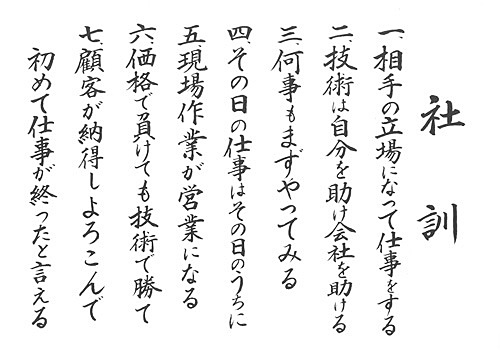 社訓
一、相手の立場になって仕事をする
二、技術は自分を助け会社を助ける
三、何事もまずやってみる
四、その日の仕事はその日のうちに
五、現場作業が営業になる
六、価格で負けても技術で勝て
七、顧客が納得しよろこんで
初めて仕事が終ったと言える